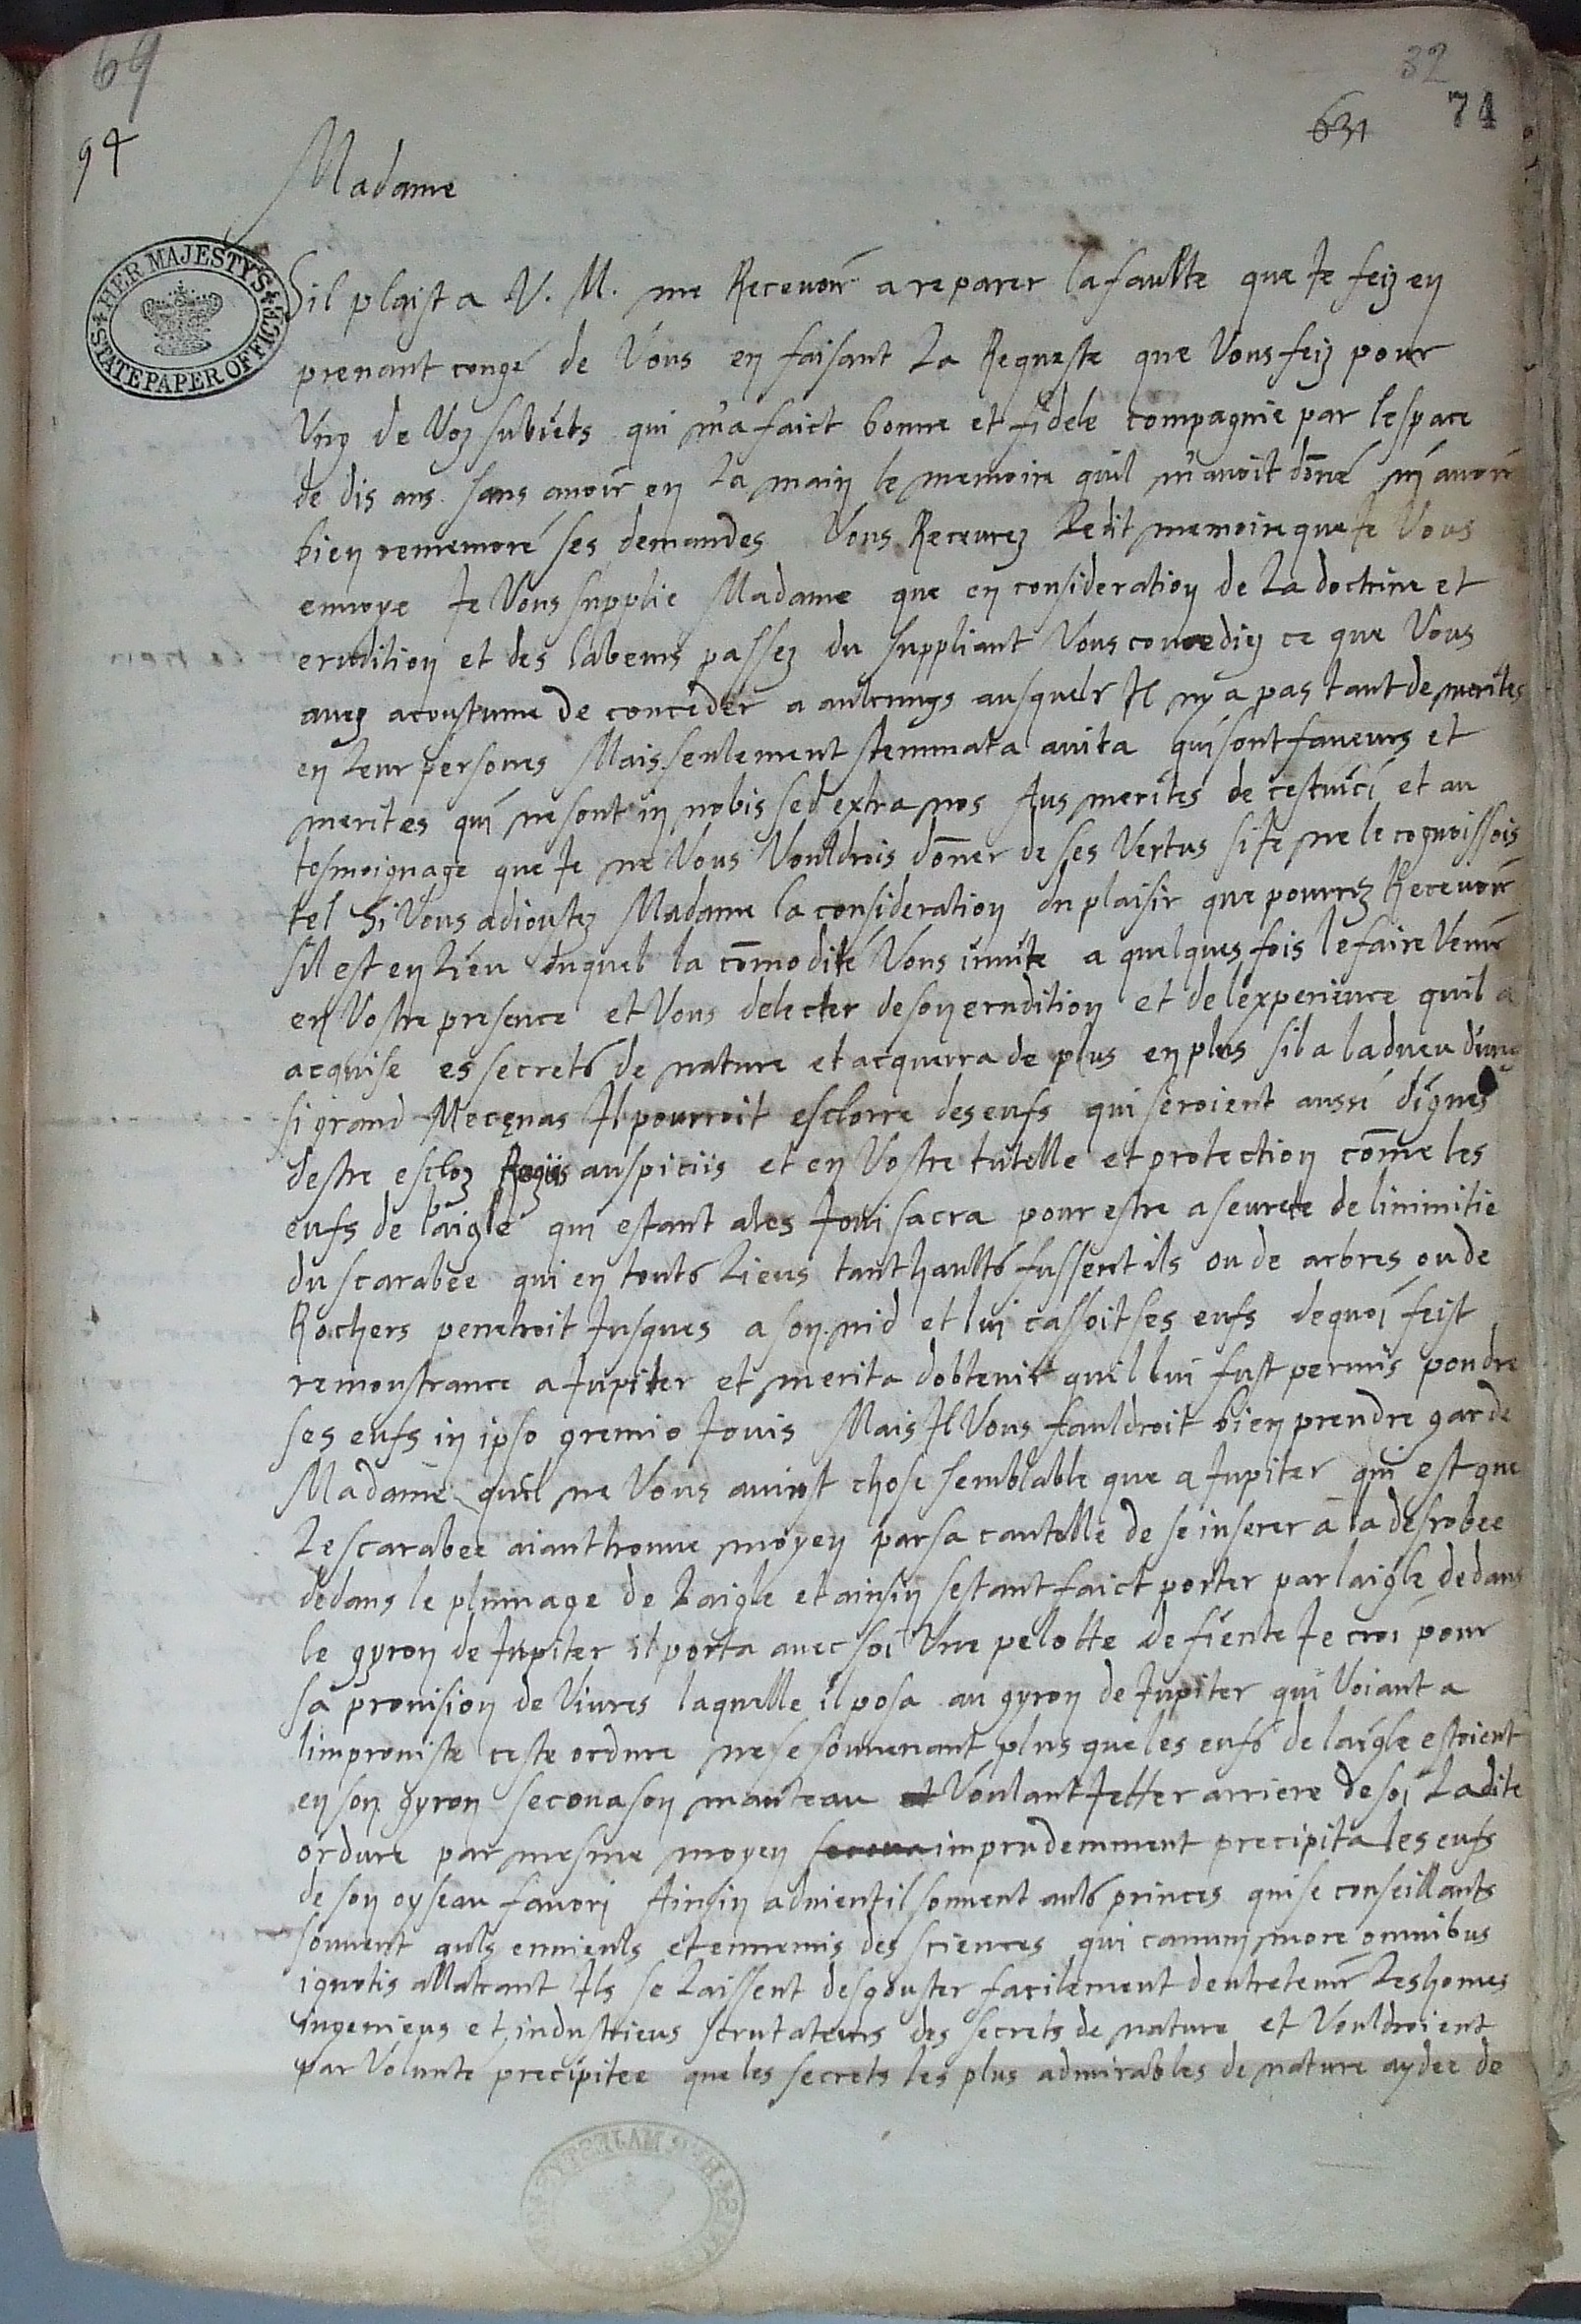 69
32
631
74
94
HER MAJESTY'S STATE PAPER OFFICE
Madame
Sil plaist a V. M. me Recevoir a reparer la faulte que Je feiz en
prenant congé de Vous en faisant La Requeste que Vous feiz pour
Ung de Voz subiets qui m'a faict bonne et fidele compagnie par lespace
de dis ans. sans avoir en La main le memoire quil m'avoit doñé ni avoir
bien rememoré ses demandes Vous Recevrez Ledit memoire que Je Vous
envoye Je Vous supplie Madame que en consideration de La doctrine et
erudition et des labeurs passez du suppliant Vous concediez ce que Vous
avez acoustume de conceder a aulcungs ausquels Il ny a pas tant de merites
en Leur persones Mais seulement stemmata avita qui sont faveurs et
merites qui ne sont in nobis sed extra nos Aus merites de cestuici et au
tesmoignage que Je ne Vous Vouldrois doñer de ses Vertus si Je ne le cognoissois
tel Si Vous adioutez Madame la consideration du plaisir que pourrez Recevoir
sil est en Lieu duquel la cõmodité Vous invite a quelques fois le faire Venir
en Vostre presence et Vous delecter de son erudition et de lexperience quil a
acquise es secrets de nature et acquerra de plus en plus sil a ladveu dung
si grand Mecęnas Il pourroit esclorre des eufs qui seroient aussi dignes
destre escloz Regiis auspiciis et en Vostre tutelle et protection cõme les
eufs de laigle qui estant ales Jovi sacra pour estre aseurete de linimitie
du scarabee qui en touts Lieus tant haults fussent ils ou de arbres ou de
Rochers penetroit Jusques a son nid et lui cassoit ses eufs dequoi feist
remonstrance a Jupiter et merita dobtenir quil lui fust permis pondre
ses eufs in ipso gremio Jovis Mais Il Vous fauldroit bien prendre garde
Madame quil ne Vous avinst chose semblable que a Jupiter qui est que
Lescarabee aiant trouve moyen par sa cautelle de se inserer a la desrobee
dedans le plumage de Laigle et ainsin sestant faict porter par laigle dedans
le gyron de Jupiter il porta avec soi Une pelotte de fiente Je croi pour
sa provision de Vivres laquelle il posa au gyron de Jupiter qui Voiant a
limproviste ceste ordure ne se souvenant plus que les eufs de laigle estoient
en son gyron secoua son manteau et Voulant Jetter arriere de soi Ladite
ordure par mesme moyen secoua imprudemment precipita les eufs
de son oyseau favori Ainsin advient il souvent auls princes qui se conseillants
souvent auls envieuls et ennemis des sciences qui canum more omnibus
ignotis allatrant Ils se Laissent desgouster facilement dentretenir Les homes
ingenieus et industrieus scrutateurs des secrets de nature et Vouldroient
par Volunte precipitee que les secrets les plus admirables de nature aydee de